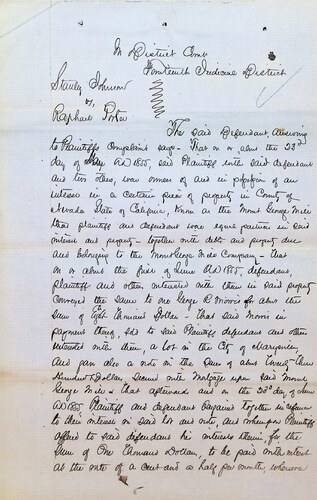 In District Court
Fourteenth Judicial District
Stanley Johnson
vs
Raphael Porter
The said Defendant, answering
to Plaintiffs Complaint says - That on or about the 23d
day of May AD 1855, said Plaintiff with said defendant
and two others, were owners of and in possession of an
interest in a certain piece of property in County of
Nevada State of California, known as the Mont George Mill
that plaintiff and defendant were equal partners in said
interest and property - together with debts and property due
and belonging to the Mont George Mill Company - that
on or about the first of June AD 1855, defendant,
plaintiff and others interested with them in said property
conveyed the same to one George R Morris for about the
Sum of Eight Thousand Dollars - that said Morris in
payment thereof, sold to said Plaintiff defendant and others
interested with them, a lot in the City of Marysville,
And gave also a note in the sum of about Twenty-three
Hundred Dollars, secured with Mortgage upon said Mont
George Mill - that afterwards and on the 23d day of June
AD 1855 Plaintiff and defendant bargained together in reference
to their interest in said lot and note, and whereupon Plaintiff
offered to said defendant his interests therein for the
sum of One Thousand Dollars, to be paid with interest
at the rate of a cent and a half per month, whenever